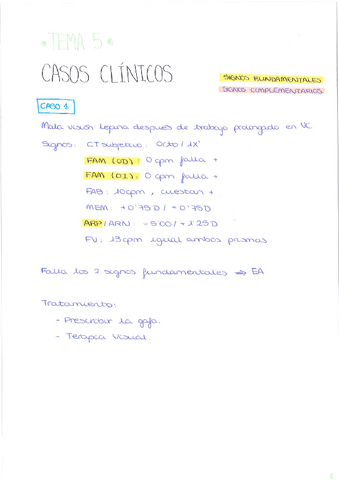 * TEMA 5 *
CASOS CLÍNICOS
SIGNOS FUNDAMENTALES
SIGNOS COMPLEMENTARIOS
CASO 1
Mala visión lejana después de trabajo prolongado en VC
Signos: CT subjetivo: Orto / 1X'
FAM (OD): 0 cpm falla +
FAM (OI): 0 cpm falla +
FAB: 10cpm, cuestan +
MEM: +0'75D / +0'75D
ARP/ARN: -5'00 / +1'25D
FV: 13cpm igual ambos prismas
Falla los 2 signos fundamentales ⇒ EA
Tratamiento:
- Prescribir la gafa.
- Terapia visual.
1